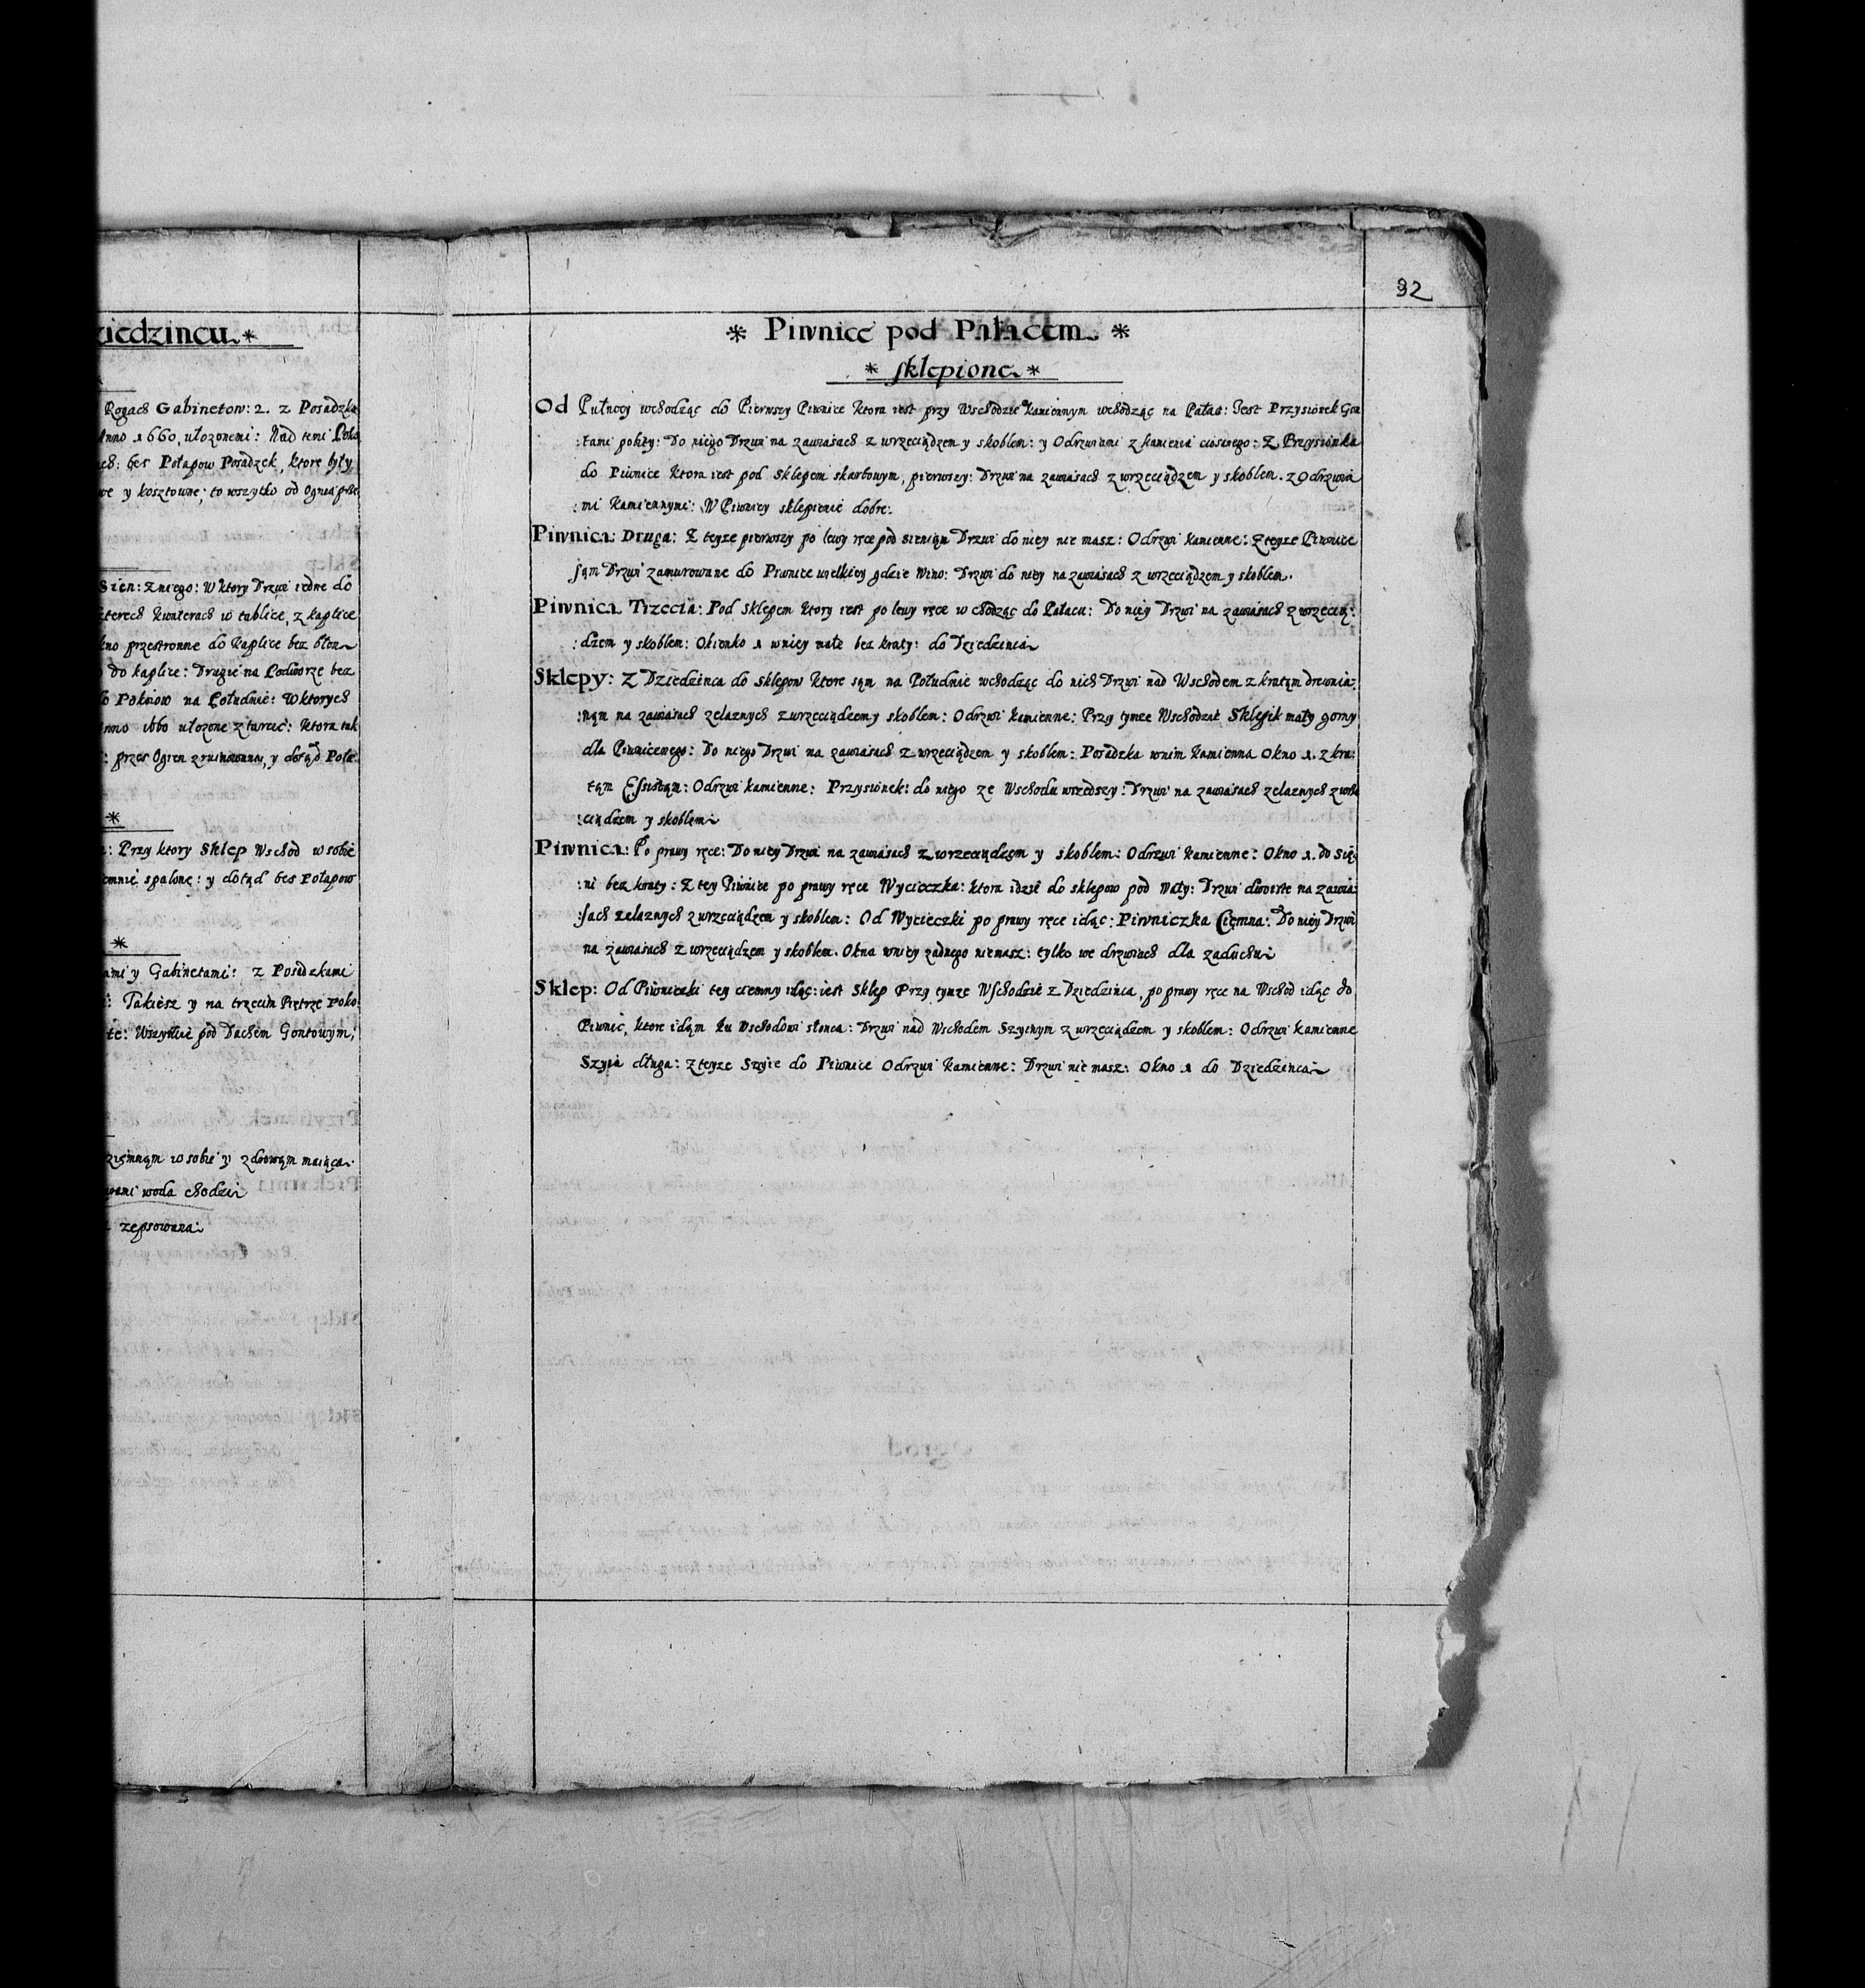 92
ziedzincu
Rogach Gabinetow: 2. z Posadzka
Anno 1660, ułozonemi: Nad temi Poko
bes Potapow Posadzek, ktore były
y kosztowne; to wszytko od Ognia
Sien: z niego: W ktory Drzwi iedne do
kwaterach w tablice, z kaplice
przestronne do Kaplice bez błon
do kaplice: Drugie na Podworze bez
Pokoiow na Południe: W ktorych
Anno 1660 ułozone z tarcic: ktora tak
: przes Ogien zruinowana, y dotąd Poła
*
: Przy ktory Sklep Wschod w sobie
spalone: y dotąd bes Potapow
*
ami y Gabinetami: z Posadzkami
Takiesz y na trzecim Piętrze Poko
te: Wszytkie pod Dachem Gontowym,
w sobie y zdrowąm maiąca
woda chodzi
zepsowana
* Piwnice pod Pałacem *
* sklepione *
Od Pułnocy wchodząc do Pierwszy Piwnice ktora iest przy Wschodzie Kamiennym wchodząc na Pałac: Jest Przysionek Gon
:tami pobity: Do niego Drzwi na zawiasach z wrzeciądzem y skoblem: y Odrzwiami z kamienia ciosanego: Z Przysionka
do Piwnice ktora iest pod Sklepem skarbowym, pierwszy: Drzwi na zawiasach z wrzeciądzem y skoblem. z Odrzwia
:mi Kamiennymi: W Piwnicy sklepienie dobre.
Piwnica: Druga: Z teyze pierwszy po lewy ręce pod sieniąm Drzwi do niey nie masz: Odrzwi kamienne: Z teyze Piwnice
sąm Drzwi zamurowane do Piwnice wielkiey gdzie Wino: Drzwi do niey na zawiasach z wrzeciądzem y skoblem.
Piwnica Trzecia: Pod Sklepem ktory iest po lewy ręce wchodząc do Pałacu: Do niey Drzwi na zawiasach z wrzecią:
:dzem y skoblem: Okienko 1 wniey małe bez kraty: do Dziedzinca
Sklepy: Z Dziedzinca do Sklepow ktore sąm na Południe wchodząc do nich Drzwi nad Wschodem z kratąm drewnia:
:nąm na zawiasach zelaznych z wrzeciądzem y skoblem: Odrzwi kamienne: Przy tymze Wschodzie Sklepik mały gorny
dla Piwnicznego: Do niego Drzwi na zawiasach z wrzeciądzem y skoblem: Posadzka wnim kamienna Okno 1. z kra:
tąm Odrzwi kamienne: Przysionek: do niego ze Wschodu wszedszy: Drzwi na zawiasach zelaznych z wrze
:ciądzem y skoblem
Piwnica: Po prawy ręce: Do niey Drzwi na zawiasach z wrzeciądzem y skoblem: Odrzwi kamienne: Okno 1. do Się:
:ni bez kraty: Z tey Piwnice po prawy ręce Wycieczka: ktora idzie do sklepow pod Wały: Drzwi dwoiste na zawia:
:sach zelaznych z wrzeciądzem y skoblem: Od Wycieczki po prawy ręce idąc: Piwniczka Ciemna: Do niey Drzwi
na zawiasach z wrzeciądzem y skoblem. Okna wniey zadnego niemasz: tylko we drzwiach dla zaduchu
Sklep: Od Piwniczki tey ciemny idąc: iest Sklep Przy tymze Wschodzie z Dziedzinca, po prawy ręce na Wschod idąc do
Piwnic, ktore idąm ku Wschodowi słonca: Drzwi nad Wschodem Szyinym z wrzeciądzem y skoblem: Odrzwi kamienne
Szyia długa: z teyze Szyie do Piwnice Odrzwi kamienne: Drzwi nie masz: Okno 1 do Dziedzinca